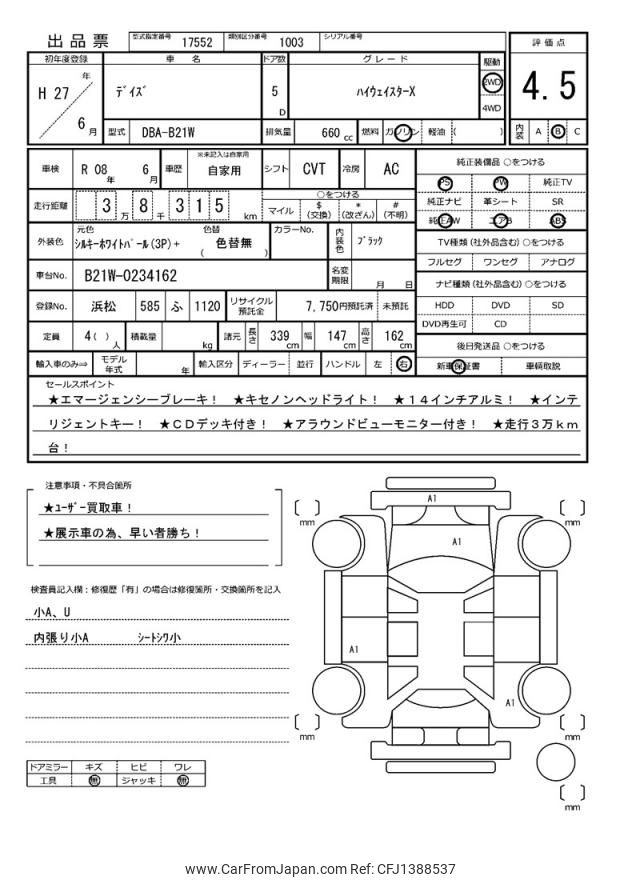 出品票 型式指定番号 17552 類別区分番号 1003 シリアル番号
評価点
初年度登録 車名 ドア数 グレード 駆動
H 27 年 6 月 デイズ 5 D ハイウェイスターX 2WD 4WD
4.5
型式 DBA-B21W 排気量 660 cc 燃料 ガソリン 軽油 ( )
内装 A B C
車検 R 08 年 6 月 車歴 ※未記入は自家用 自家用 シフト CVT 冷房 AC
走行距離 3 万 8 千 3 1 5 km ○をつける マイル $ (交換) * (改ざん) # (不明)
外装色 元色 シルキーホワイトパール(3P)+ 色替 ( 色替無 ) カラーNo. 内装色 ブラック
車台No. B21W-0234162 名変期限 月 日
登録No. 浜松 585 ふ 1120 リサイクル預託金 7,750円預託済 未預託
定員 4( ) 人 積載量 kg 諸元 長さ 339 cm 幅 147 cm 高さ 162 cm
輸入車のみ⇒ モデル年式 年 輸入区分 ディーラー 並行 ハンドル 左 右
純正装備品 ○をつける
PS PW 純正TV
純正ナビ 革シート SR
純正AW エアB ABS
TV種類 (社外品含む) ○をつける
フルセグ ワンセグ アナログ
ナビ種類 (社外品含む) ○をつける
HDD DVD SD
DVD再生可 CD
後日発送品 ○をつける
新車保証書 車輌取説
セールスポイント
★エマージェンシーブレーキ! ★キセノンヘッドライト! ★14インチアルミ! ★インテ
リジェントキー! ★CDデッキ付き! ★アラウンドビューモニター付き! ★走行3万km
台!
注意事項・不具合箇所
★ユーザー買取車!
★展示車の為、早い者勝ち!
検査員記入欄:修復歴「有」の場合は修復箇所・交換箇所を記入
小A、U
内張り小A シートシワ小
ドアミラー キズ ヒビ ワレ
工具 無 ジャッキ 無
A1
mm mm
A1
A1
A1
mm mm
mm
www.CarFromJapan.com Ref: CFJ1388537